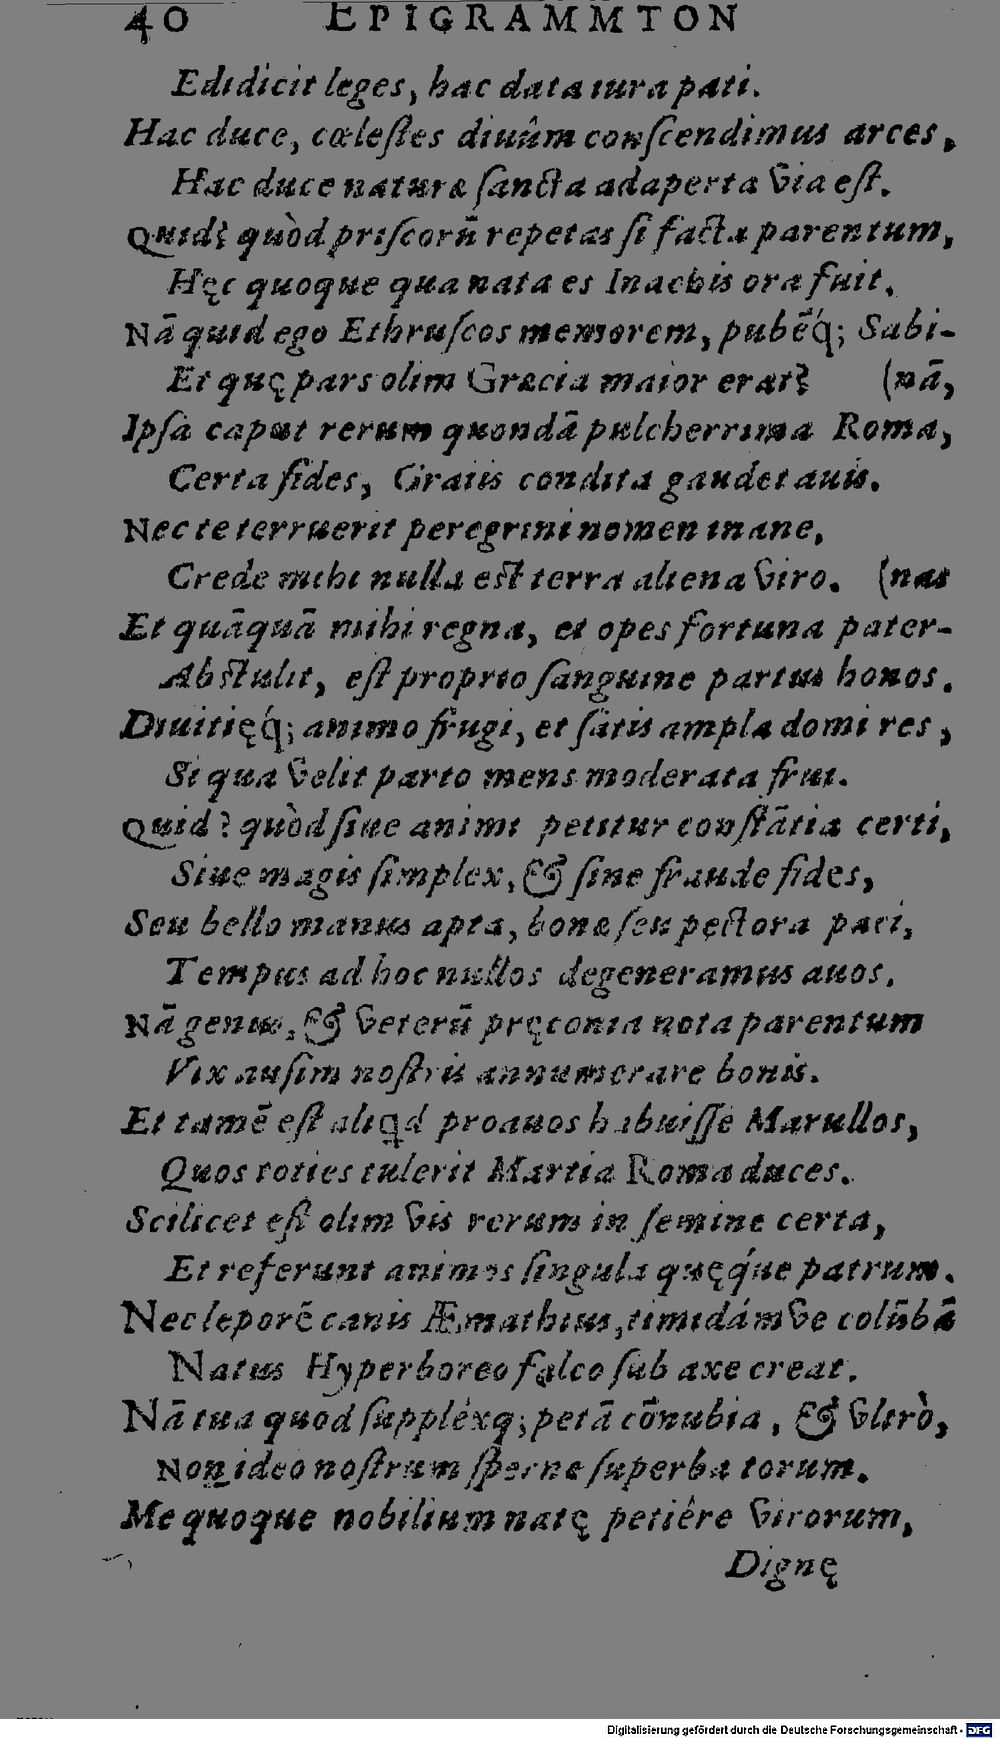 40 EPIGRAMMTON
Edidicit leges, hac data iura pati.
Hac duce, cœleſtes diuûm conſcendimus arces,
Hac duce naturæ ſancta adaperta via eſt.
Quid? quòd priſcorū repetas ſi facta parentum,
Hęc quoque qua nata es Inachis ora fuit.
Nā quid ego Ethruſcos memorem, pubēq́; Sabi-
Et quę pars olim Græcia maior erat? (nā,
Ipſa caput rerum quondā pulcherrima Roma,
Certa fides, Graiis condita gaudet auis.
Nec te terruerit peregrini nomen inane,
Crede mihi nulla eſt terra aliena viro. (nas
Et quāquā mihi regna, et opes fortuna pater-
Abſtulit, eſt proprio ſanguine partus honos.
Diuitięq́; animo frugi, et ſatis ampla domi res,
Si qua velit parto mens moderata frui.
Quid? quòd ſiue animi petitur conſtātia certi,
Siue magis ſimplex, & ſine fraude fides,
Seu bello manus apta, bonæ ſeu pectora paci,
Tempus ad hoc nullos degeneramus auos.
Nā genus, & veterū pręconia nota parentum
Vix auſim noſtris annumerare bonis.
Et tamē eſt aliqd proauos habuiſſe Marullos,
Quos toties tulerit Martia Roma duces.
Scilicet eſt olim vis rerum in ſemine certa,
Et referunt animos ſingula quęq́ue patrum.
Nec leporē canis Æmathius, timidámve colūbā
Natus Hyperboreo falco ſub axe creat.
Nā tua quod ſuppléxq; petā cōnubia, & vltrò,
Non ideo noſtrum ſperne ſuperba torum.
Me quoque nobilium natę petiêre virorum,
Dignę
Digitalisierung gefördert durch die Deutsche Forschungsgemeinschaft - DFG